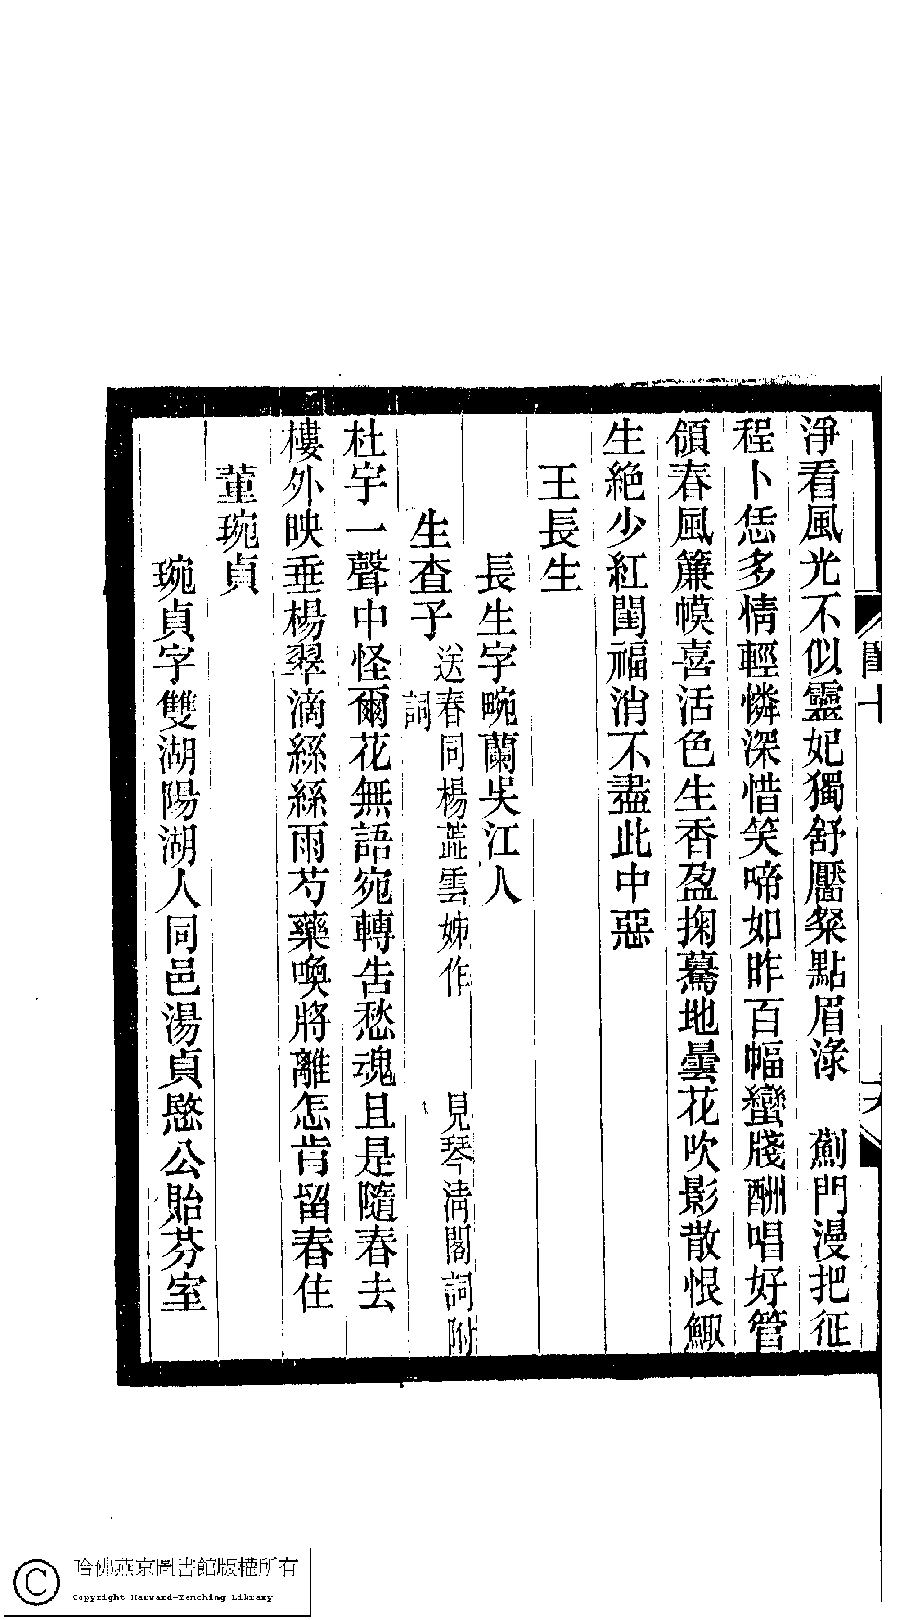 淨看風光不似靈妃獨舒靨粲點眉淥　薊門漫把征
程卜恁多情輕憐深惜笑啼如昨百幅蠻牋酬唱好管
領春風簾幙喜活色生香盈掬驀地曇花吹影散恨鰥
生絶少紅閨福消不盡此中惡
王長生
長生字畹蘭吳江人
生查子　送春同楊蕋雲姊作　見琴淸閣詞附
詞
杜宇一聲中怪爾花無語宛轉告愁魂且是隨春去
樓外映垂楊翠滴絲絲雨芍藥喚將離怎肯留春住
董琬貞
琬貞字雙湖陽湖人同邑湯貞愍公貽芬室
哈佛燕京圖書館版權所有
Copyright Harvard-Yenching Library